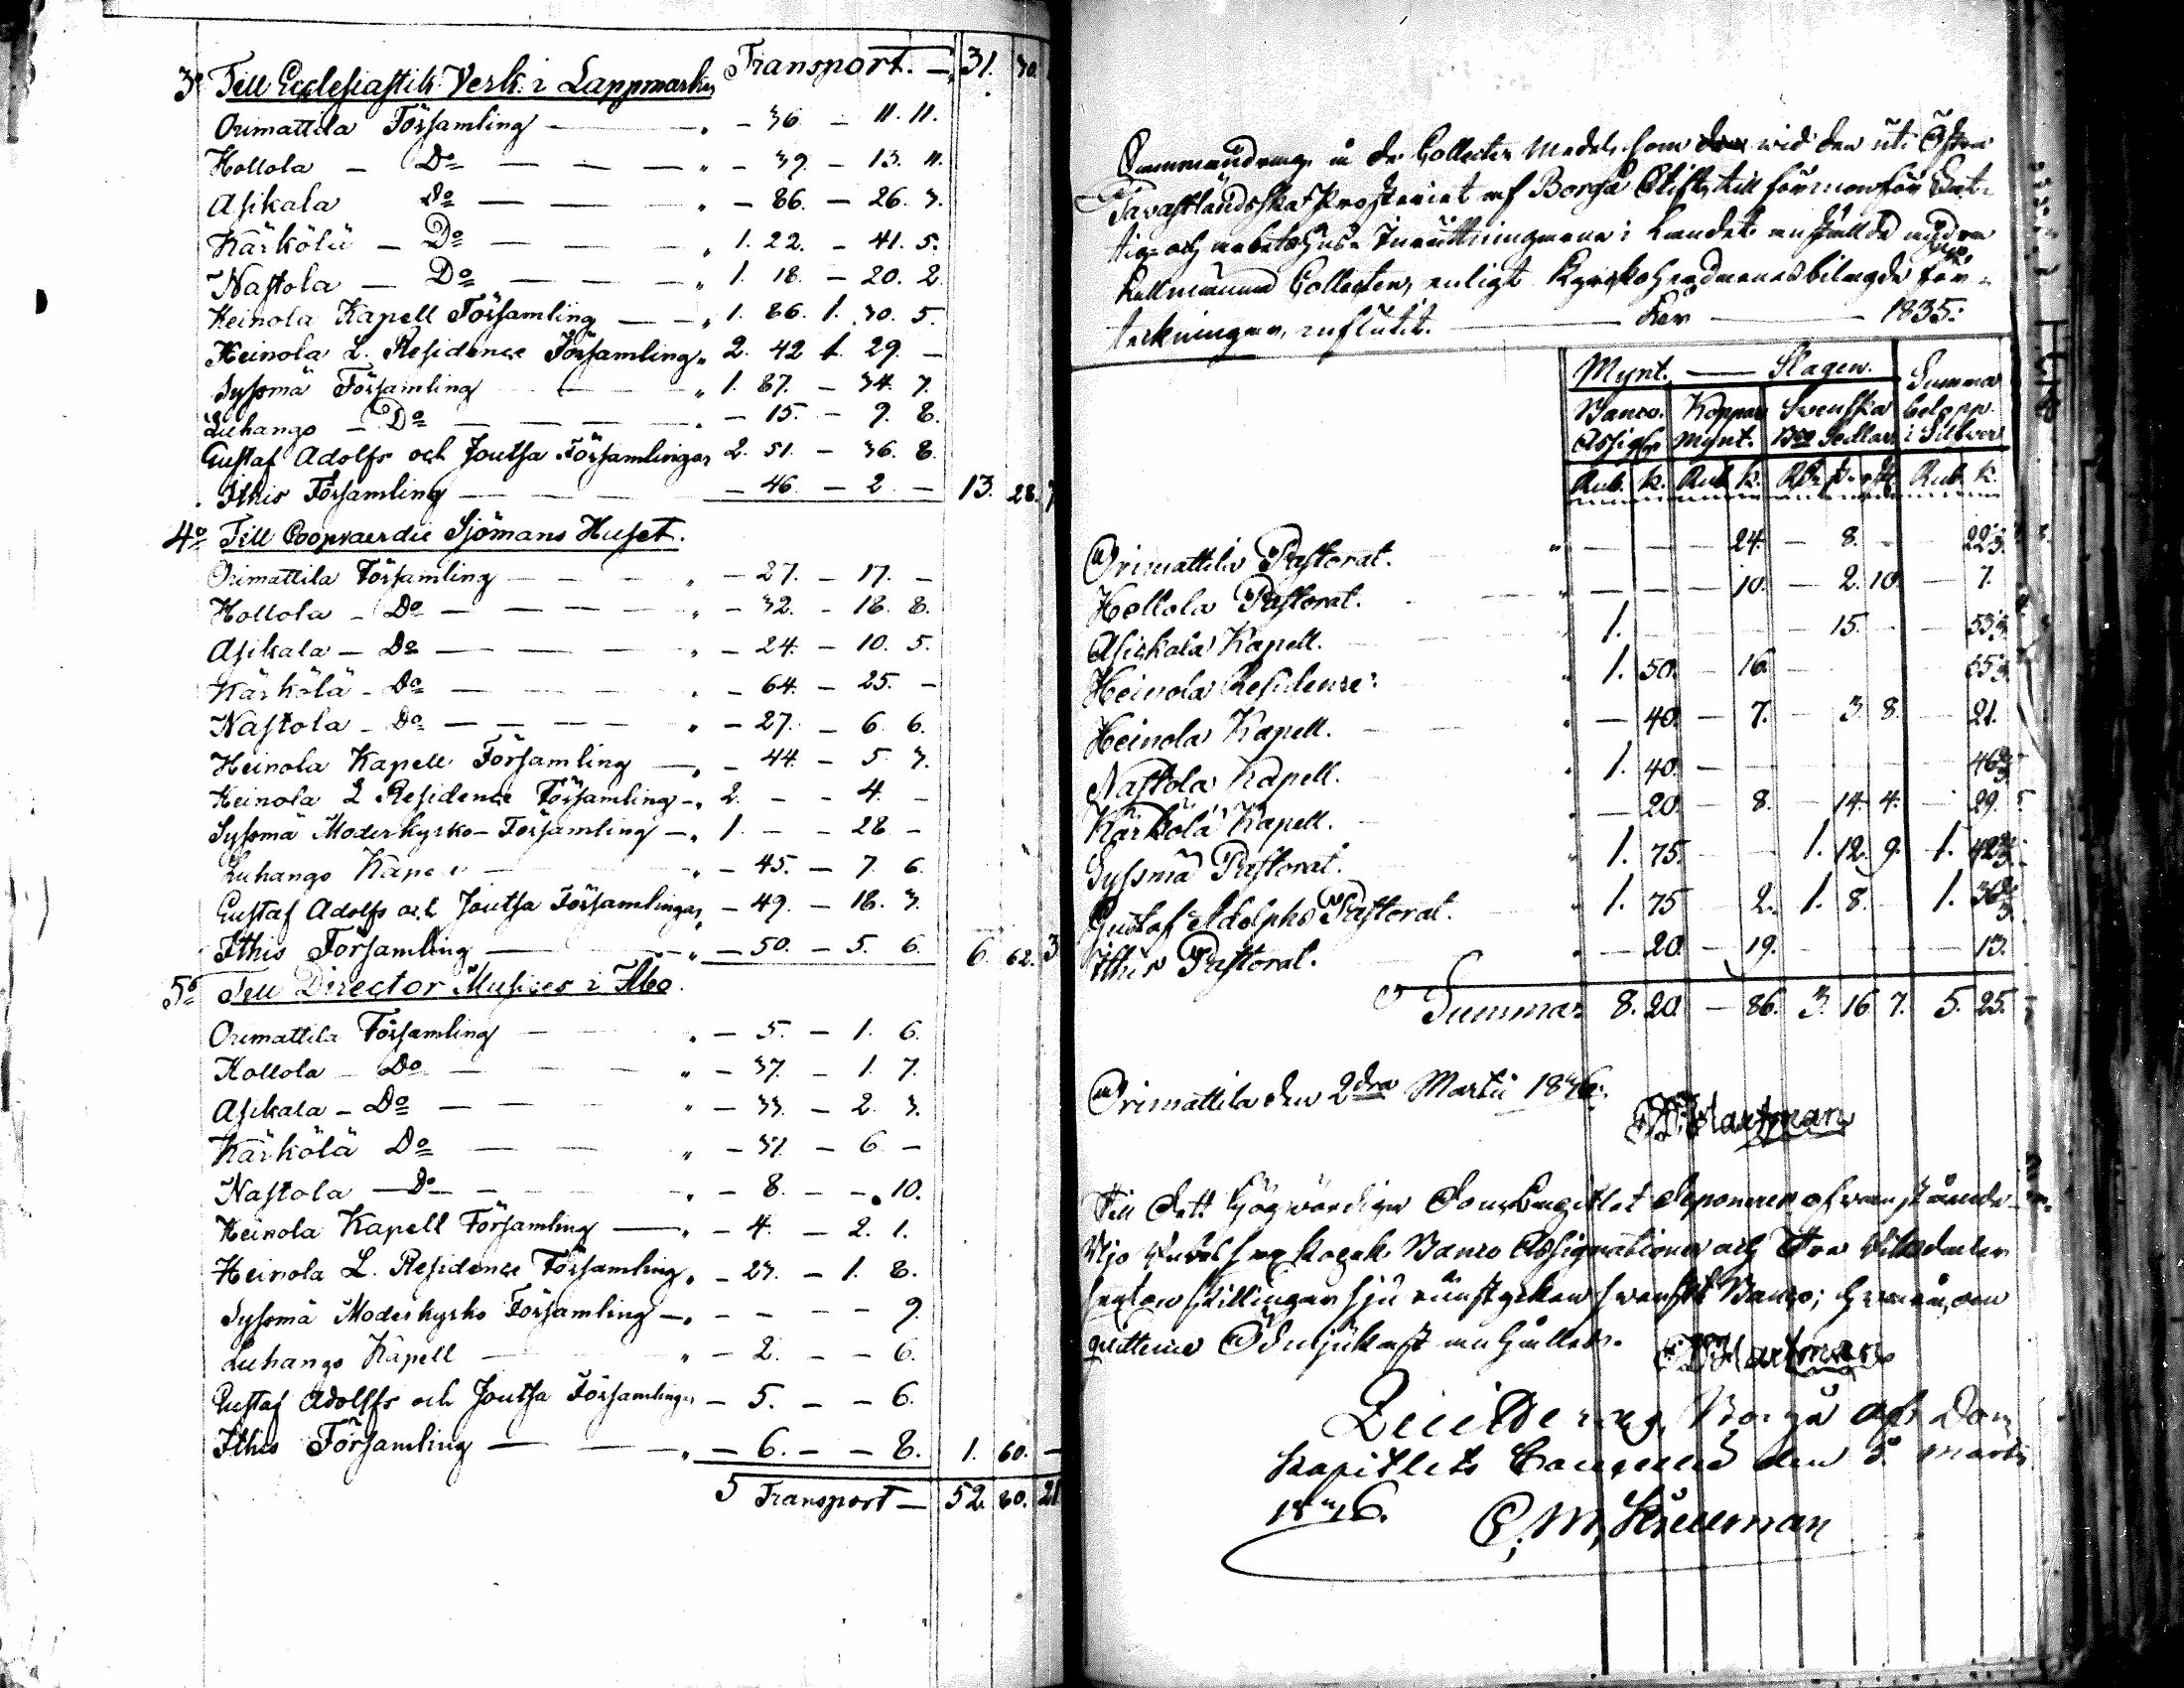 Transport. — 31. 30.
3o Till Ecclesiastik Verk. i Lappmarken
Orimattila Församling — „ — 36 — 11. 11.
Hollola — Do — — — „ — 39. — 13. 11.
Asikala Do — — — „ — 86. — 26. 3.
Kärkölä — Do — — — „ 1. 22. — 41. 5.
Nastola — Do — — — „ 1. 18. — 20. 2.
Heinola Kapell Församling — „ 1. 86. 1. 30. 5.
Heinola L. Residence Församling „ 2. 42 1. 29. —
Syssmä Församling — — „ 1. 87. — 34. 7.
Luhango — Do — — — „ — 15. — 9. 8.
Gustaf Adolfs och Joutsa Församlingar 2. 51. — 36. 8.
Ithis Församling — — — — 46 — 2 — 13. 28. 7
4o Till Coopvaerdie Sjömans Huset.
Orimattila Församling — — — „ — 27. — 17. —
Hollola — Do — — — „ — 32. — 18. 8.
Asikala — Do — — — „ — 24. — 10. 5.
Kärkölä — Do — — — „ — 64. — 25. —
Nastola — Do — — — „ — 27. — 6. 6.
Heinola Kapell Församling — „ — 44. — 5. 3.
Heinola L Residence Församling — „ 2. — — 4. —
Syssmä Moderkyrko Församling — „ 1. — — 28 —
Luhango Kapell — „ — 45. — 7. 6.
Gustaf Adolfs och Joutsa Församlingar „ — 49. — 18. 3.
Ithis Församling — — „ — 50. — 5. 6. 6. 62. 3
5o Till Director Musices i Åbo.
Orimattila Församling — — „ — 5. — 1. 6.
Hollola — Do — — — „ — 37. — 1. 7.
Asikala — Do — — — „ — 33. — 2. 3.
Kärkölä Do — — — „ — 31. — 6 —
Nastola — Do — — „ — 8. — — 10.
Heinola Kapell Församling — „ — 4. — 2. 1.
Heinola L. Residence Församling „ — 23. — 1. 8.
Syssmä Moderkyrko Församling — „ — — — — 9.
Luhango Kapell — „ — 2. — — 6.
Gustaf Adolfs och Joutsa Församlingar — 5. — — 6.
Ithis Församling — — „ — 6. — — 8. 1. 60. —
5 Transport — 52. 80. 21
Sammandrag, å de Collecte Medel, som vid den uti Östra
Tavastländska Prosteriet af Borgå Stift, till förmon för Fat-
tig- och arbetshus Inrättningarne i Landet anställde
Collecten, enligt Kyrkoherdarnes bilagde för-
teckningar, influtit. — För — 1835:
Mynt. — Slagen. Summa
Banco Koppar Svenska belopp
Assigtr Mynt. Bco Sedlar i Silfver
Rub. k. Rub. k. Rdr sk. rst. Rub. k.
Orimattila Pastorat. „ — — — 24. — 8. — — 22
Hollola Pastorat. „ — — — 10. — 2. 10. — 7.
Asickala Kapell. 1. — — — — 15. — — 53
Heinola Residence. „ 1. 50. — 16. — — — —
Heinola Kapell. „ — 40. — 7. — 3. 8. — 21.
Nastola Kapell. „ 1. 40. — — — — — — 46
Kärkölä Kapell. „ — 20. — 8. — 14. 4. — 29.
Syssmä Pastorat. „ 1. 75. — — 1. 12. 9. 1. 42
Gustaf Adolphs Pastorat. „ 1. 75 — 2. 1. 8. — 1. 36
Ithis Pastorat. „ — 20. — 19. — — — — 13.
Summa 8. 20. — 86. 3. 16. 7. 5. 25.
Orimattila den 2dra Martii 1836.
Hartman
Till Dett Högvördiga DomCapitlet deponeras ofvanstående
Nijo Rubel sex kopek Banco Assignationer och Tre Riksdaler
sexton skillingar sju runstycken svenskt Banco; hvarom
quittence Ödmjukast anhålles. Hartman
Qvitteras, Borgå af Dom
Kapitlets den 5 Martii
1836.